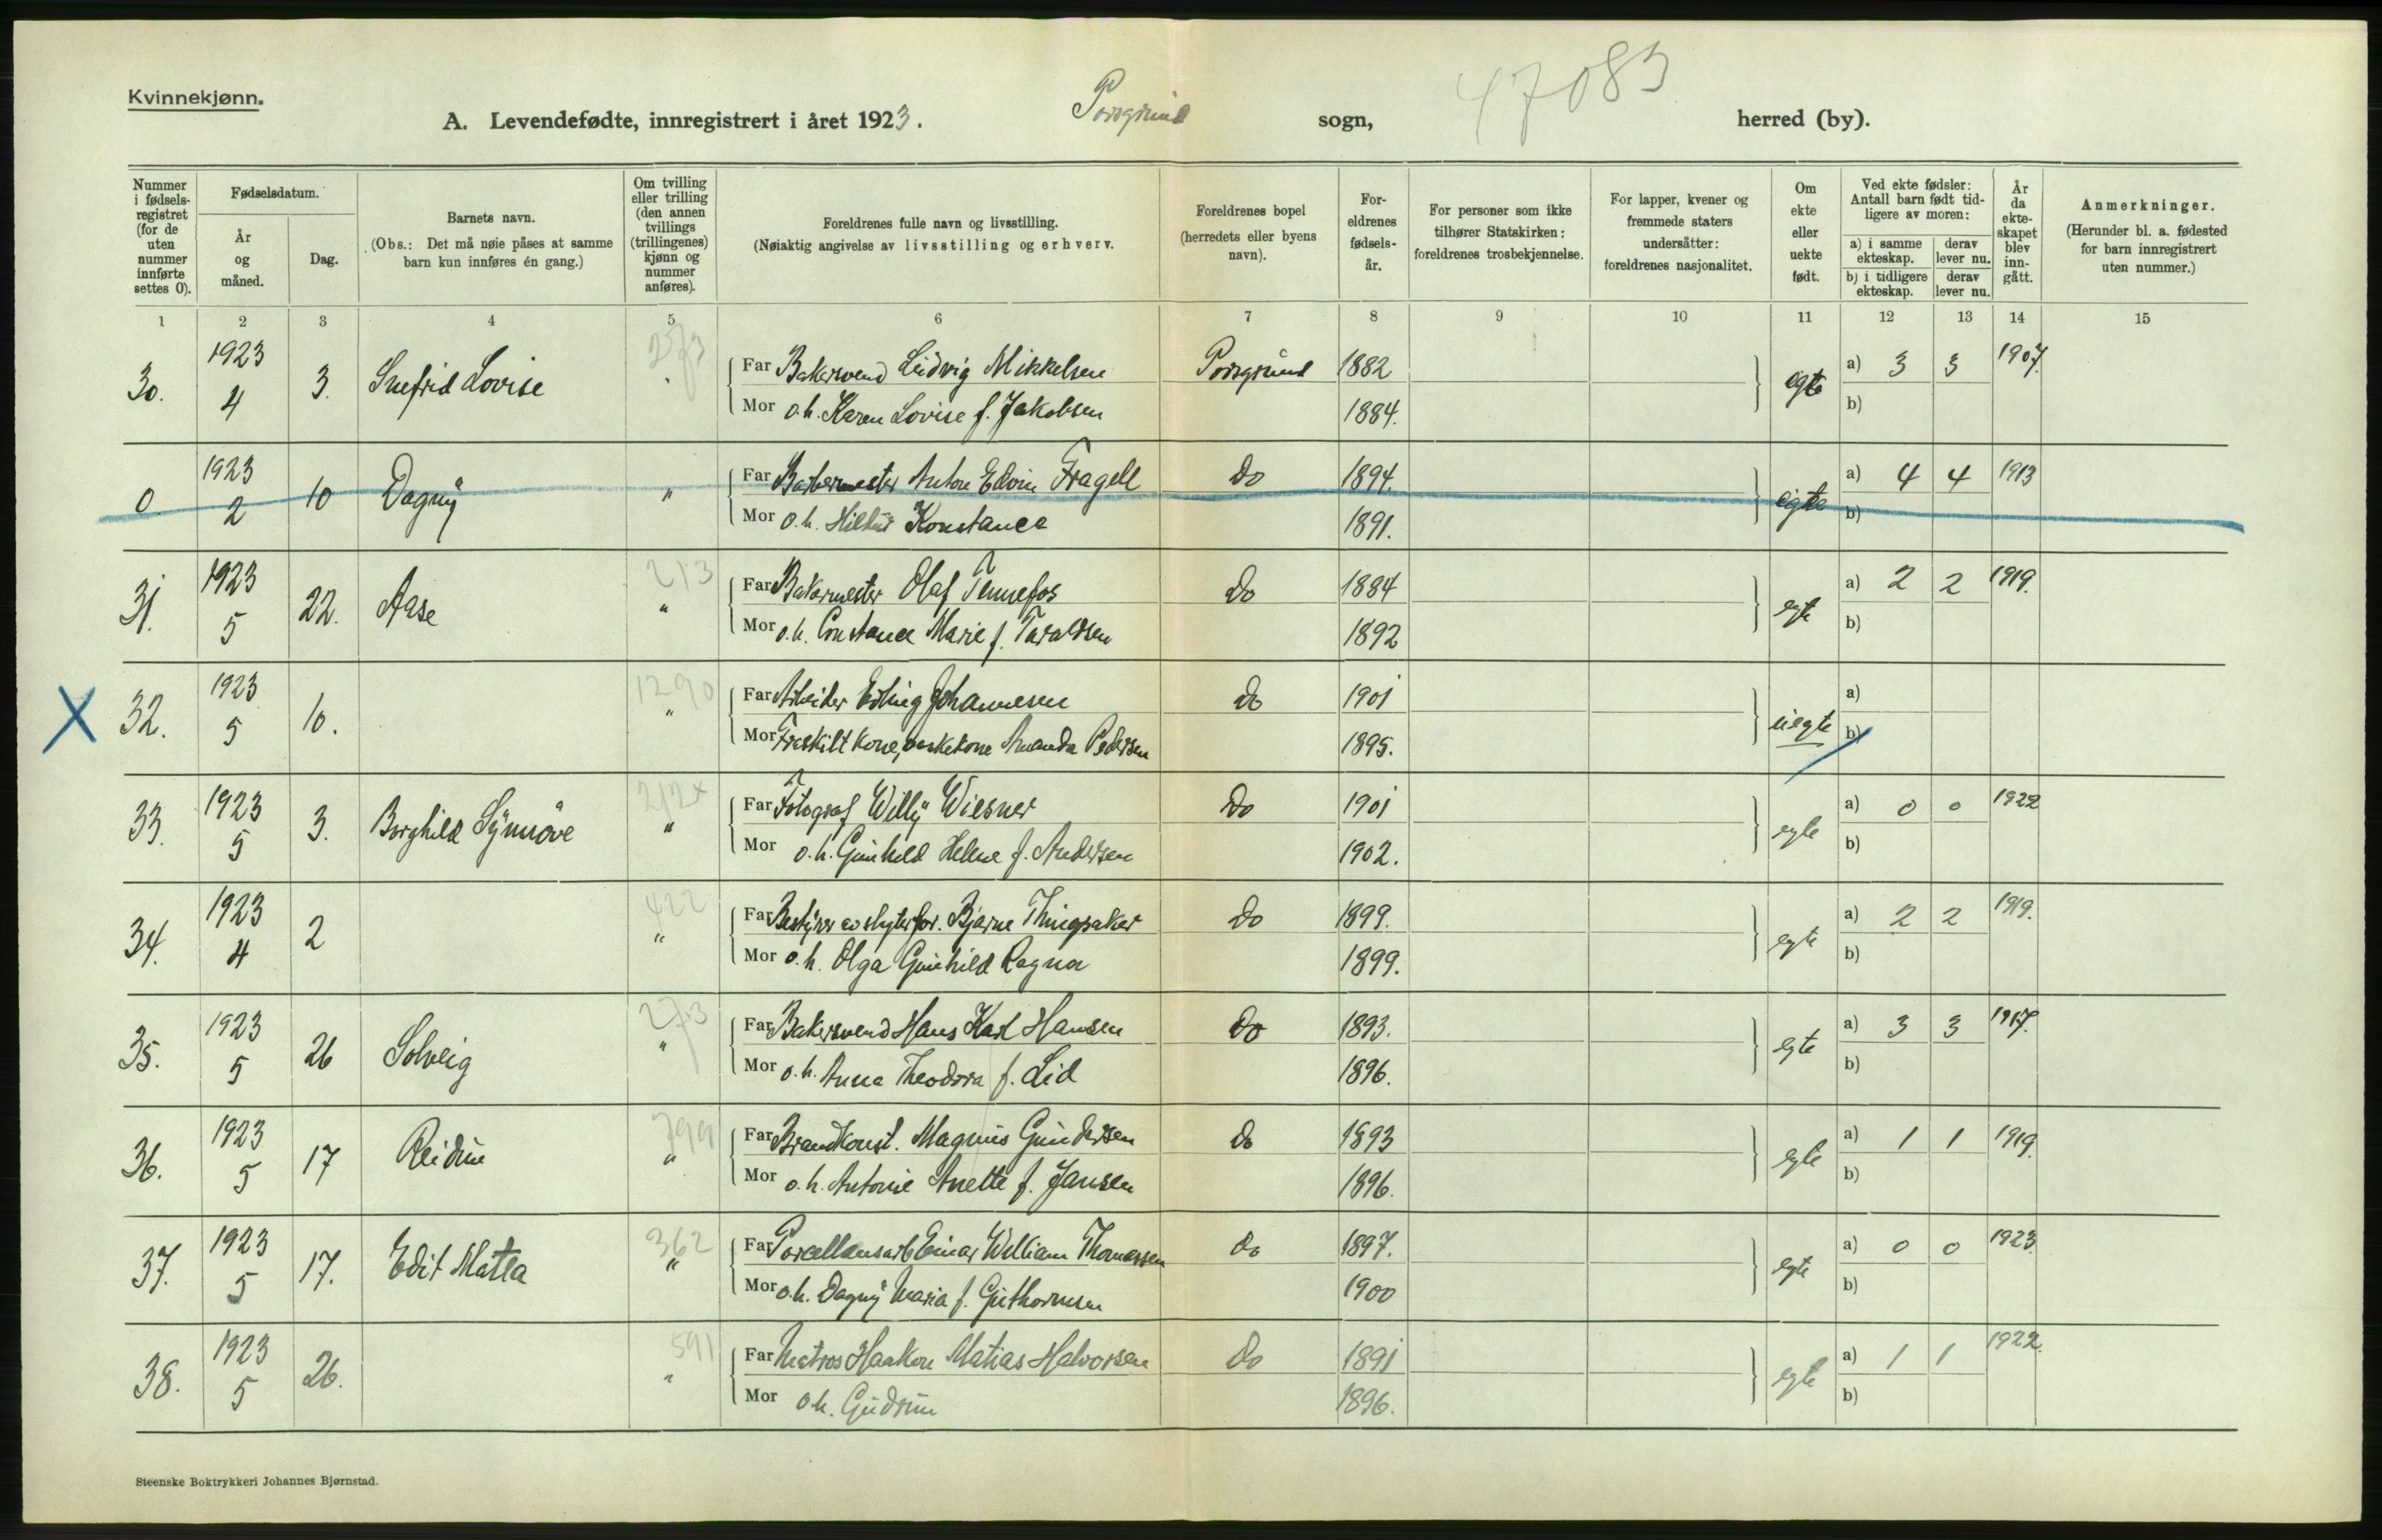 Kvinnekjønn.
A. Levendefødte, innregistrert i året 1923. Porsgrund sogn, 47083 herred (by).
Nummer i fødsels-registret (for de uten nummer innførte settes 0).
Fødselsdatum.
År og måned.
Dag.
Barnets navn.
(Obs.: Det må nøie påses at samme barn kun innføres én gang.)
Om tvilling eller trilling (den annen tvillings (trillingenes) kjønn og nummer anføres).
Foreldrenes fulle navn og livsstilling.
(Nøiaktig angivelse av livsstilling og erhverv.
Foreldrenes bopel (herredets eller byens navn).
For-eldrenes fødsels-år.
For personer som ikke tilhører Statskirken: foreldrenes trosbekjennelse.
For lapper, kvener og fremmede staters undersåtter: foreldrenes nasjonalitet.
Om ekte eller uekte født.
Ved ekte fødsler: Antall barn født tid-ligere av moren:
a) i samme ekteskap.
derav lever nu.
b) i tidligere ekteskap.
derav lever nu.
År da ekte-skapet blev inn-gått.
Anmerkninger.
(Herunder bl. a. fødested for barn innregistrert uten nummer.)
1 2 3 4 5 6 7 8 9 10 11 12 13 14 15
30. 1923 4 3. Snefrid Lovise 273 "
Far Bakersvend Ludvig Mikkelsen Porsgrund 1882 egte a) 3 3 1907.
Mor o.h. Karen Lovise f. Jakobsen 1884. b)
0 1923 2 10 Dagny "
Far Barbermester Anton Edvin Fragell Do 1894. egte a) 4 4 1913
Mor o.h. Konstance 1891. b)
31. 1923 5 22. Aase 273 "
Far Bakermester Olaf Tennefos Do 1884 egte a) 2 2 1919.
Mor o.h. Constance Marie f. Taraldsen 1892 b)
X 32. 1923 5 10. 1290 "
Far Arbeider Erling Johannesen Do 1901 uegte a)
Mor Fraskilt kone, vaskekone Amanda Pedersen 1895. b)
33. 1923 5 3. Borghild Synnøve "
Far Fotograf Willy Wiesner Do 1901 egte a) 0 0 1922
Mor o.h. Gunhild Helene f. Andersen 1902. b)
34. 1923 4 2 422 "
Far Bestyrer Bjarne Thingsaker Do 1899. egte a) 2 2 1919.
Mor o.h. Olga Gunhild Ragna 1899. b)
35. 1923 5 26 Solveig 273 "
Far Bakersvend Hans Karl Hansen Do 1893. egte a) 3 3 1917.
Mor o.h. Anna Theodora f. Lid 1896. b)
36. 1923 5 17 Reidun 799 "
Far Brandkonst. Magnus Gundersen Do 1893 egte a) 1 1 1919.
Mor o.h. Antonie Anette f. Jansen 1896. b)
37. 1923 5 17. Edit Matla 362 "
Far Porcellansarb Einar William Thomassen Do 1897. egte a) 0 0 1923.
Mor o.h. Dagny Maria f. Guthormsen 1900 b)
38. 1923 5 26. 591 "
Far Matros Haakon Matias Halvorsen Do 1891 egte a) 1 1 1922.
Mor o.h. Gudrun 1896. b)
Steenske Boktrykkeri Johannes Bjørnstad.